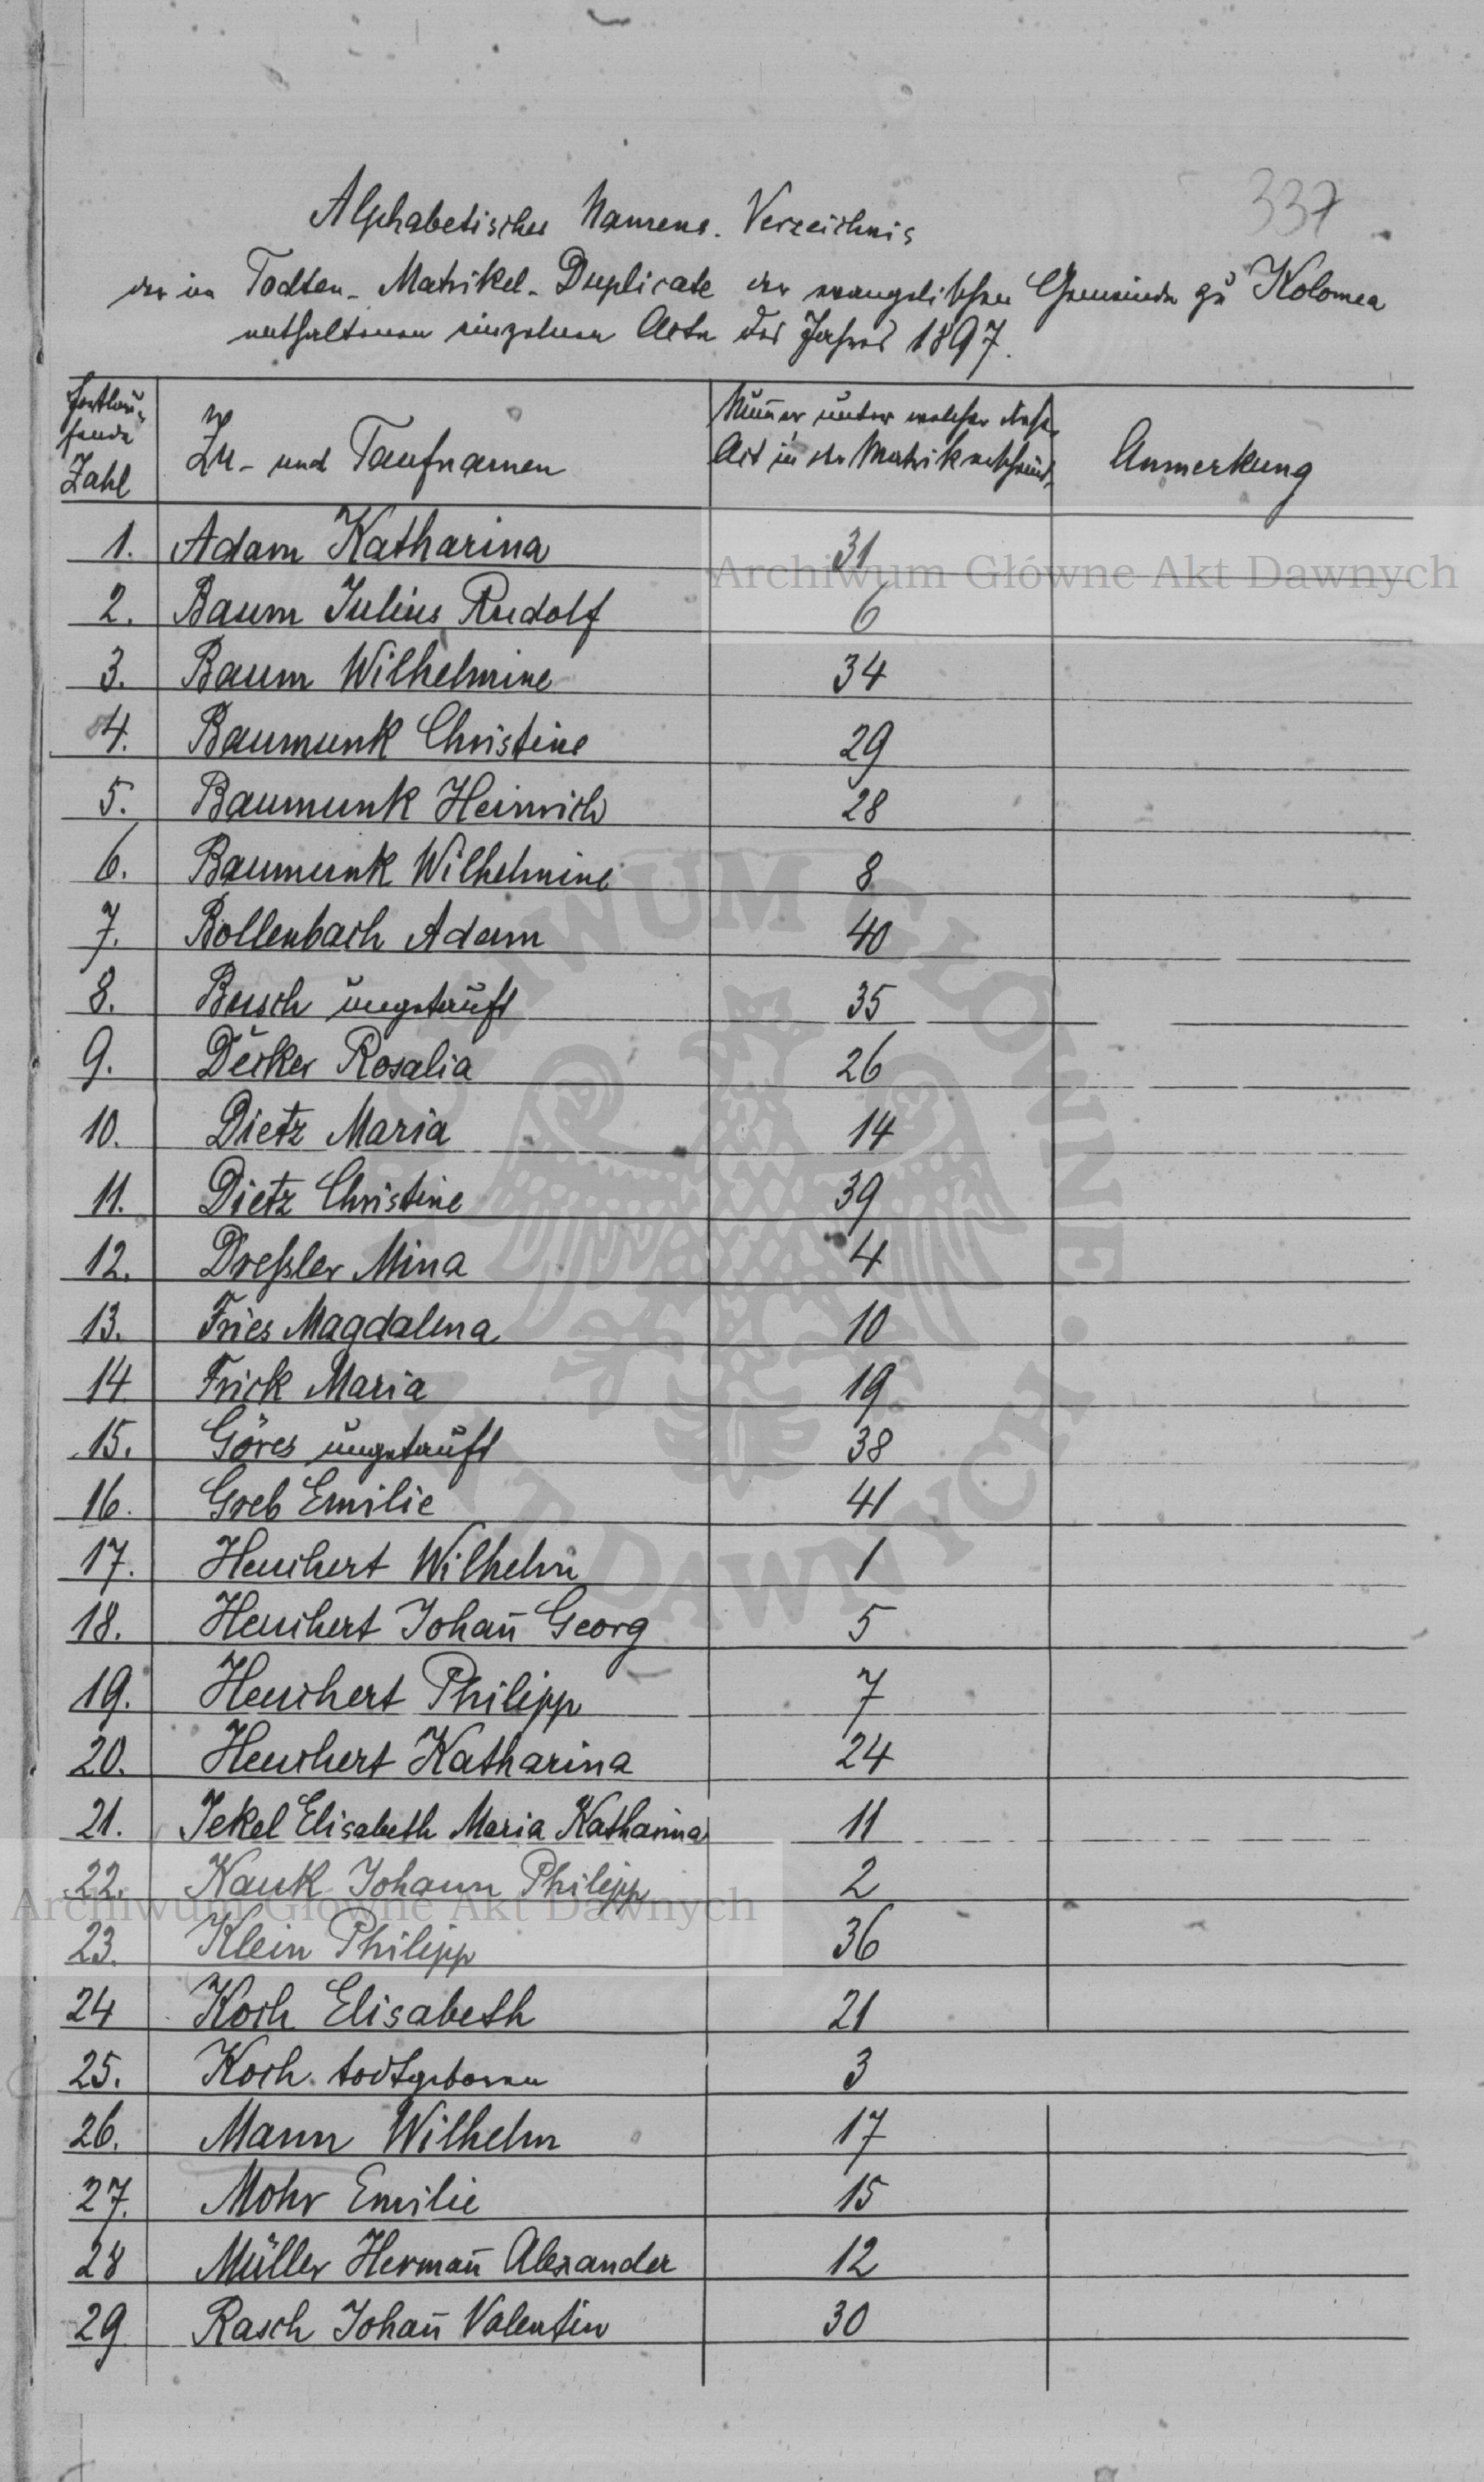 337
Alphabetisches Namens-Verzeichnis
der im Todten-Matrikel-Duplicate der evangelischen Gemeinde zu Kolomea
enthaltenen einzelnen Acte des Jahres 1897.
Fortlau-
fende
Zahl
Zu- und Taufnamen
Num̄er unter welcher dieser
Act in der Matrik erscheint
Anmerkung
1. Adam Katharina 31
2. Baum Julius Rudolf 6
3. Baum Wilhelmine 34
4. Baumunk Christine 29
5. Baumunk Heinrich 28
6. Baumunk Wilhelmine 8
7. Bollenbach Adam 40
8. Busch ungetauft 35
9. Decker Rosalia 26
10. Dietz Maria 14
11. Dietz Christine 39
12. Dreßler Mina 4
13. Fries Magdalena 10
14 Frick Maria 19
15. Göres ungetauft 38
16. Greb Emilie 41
17. Heuchert Wilhelm 1
18. Heuchert Johan̄ Georg 5
19. Heuchert Philipp 7
20. Heuchert Katharina 24
21. Jekel Elisabeth Maria Katharina 11
22. Kauk Johann Philipp 2
23. Klein Philipp 36
24 Koch Elisabeth 21
25. Koch todtgeboren 3
26. Mann Wilhelm 17
27. Mohr Emilie 15
28 Müller Herman̄ Alexander 12
29 Rasch Johan̄ Valentin 30
Archiwum Główne Akt Dawnych
Archiwum Główne Akt Dawnych
ARCHIWUM GŁÓWNE · AKT DAWNYCH